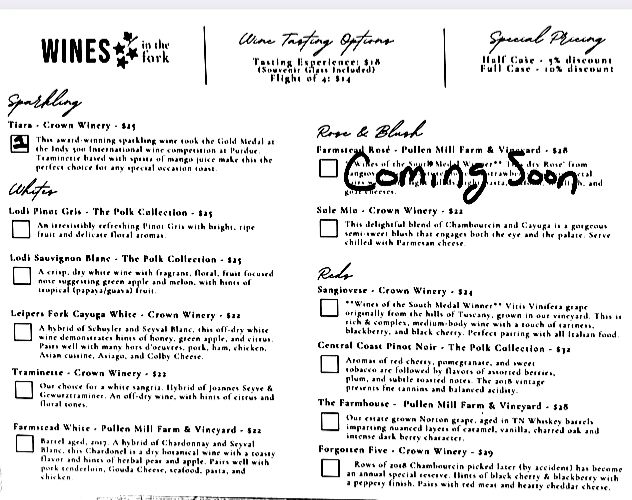 WINES in the fork
Wine Tasting Options
Tasting Experience: $18
(Souvenir Glass Included)
Flight of 4: $14
Special Pricing
Half Case - 5% discount
Full Case - 10% discount
Sparkling
Tiara - Crown Winery - $45
1
This award-winning sparkling wine took the Gold Medal at
the Indy 500 International wine competition at Purdue.
Traminette based with spritz of mango juice make this the
perfect choice for any special occasion toast.
Whites
Lodi Pinot Gris - The Polk Collection - $25
An irresistibly refreshing Pinot Gris with bright, ripe
fruit and delicate floral aromas.
Lodi Sauvignon Blanc - The Polk Collection - $25
A crisp, dry white wine with fragrant, floral, fruit focused
nose suggesting green apple and melon, with hints of
tropical (papaya/guava) fruit.
Leipers Fork Cayuga White - Crown Winery - $22
A hybrid of Schuyler and Seyval Blanc, this off-dry white
wine demonstrates hints of honey, green apple, and citrus.
Pairs well with many hors d'oeuvres, pork, ham, chicken,
Asian cuisine, Asiago, and Colby Cheese.
Traminette - Crown Winery - $22
Our choice for a white sangria. Hybrid of Joannes Seyve &
Gewurztraminer. An off-dry wine, with hints of citrus and
floral tones.
Farmstead White - Pullen Mill Farm & Vineyard - $22
Barrel aged, 2017. A hybrid of Chardonnay and Seyval
Blanc, this Chardonel is a dry botanical wine with a toasty
flavor and hints of herbal pear and apple. Pairs well with
pork tenderloin, Gouda Cheese, seafood, pasta, and
chicken.
Rose & Blush
Farmstead Rosé - Pullen Mill Farm & Vineyard - $28
**Wines of the South Medal Winner** This dry Rose' from
Coming Soon
goat cheeses.
Sole Mio - Crown Winery - $22
This delightful blend of Chambourcin and Cayuga is a gorgeous
semi-sweet blush that engages both the eye and the palate. Serve
chilled with Parmesan cheese.
Reds
Sangiovese - Crown Winery - $24
**Wines of the South Medal Winner** Vitis Vinifera grape
originally from the hills of Tuscany, grown in our vineyard. This is
rich & complex, medium-body wine with a touch of tartness,
blackberry, and black cherry. Perfect pairing with all Italian food.
Central Coast Pinot Noir - The Polk Collection - $32
Aromas of red cherry, pomegranate, and sweet
tobacco are followed by flavors of assorted berries,
plum, and subtle toasted notes. The 2018 vintage
presents fne tannins and balanced acidity.
The Farmhouse - Pullen Mill Farm & Vineyard - $28
Our estate grown Norton grape, aged in TN Whiskey barrels
imparting nuanced layers of caramel, vanilla, charred oak and
intense dark berry character.
Forgotten Five - Crown Winery - $29
Rows of 2018 Chambourcin picked later (by accident) has become
an annual special reserve. Hints of black cherry & blackberry with
a peppery finish. Pairs with red meat and hearty cheddar cheese.